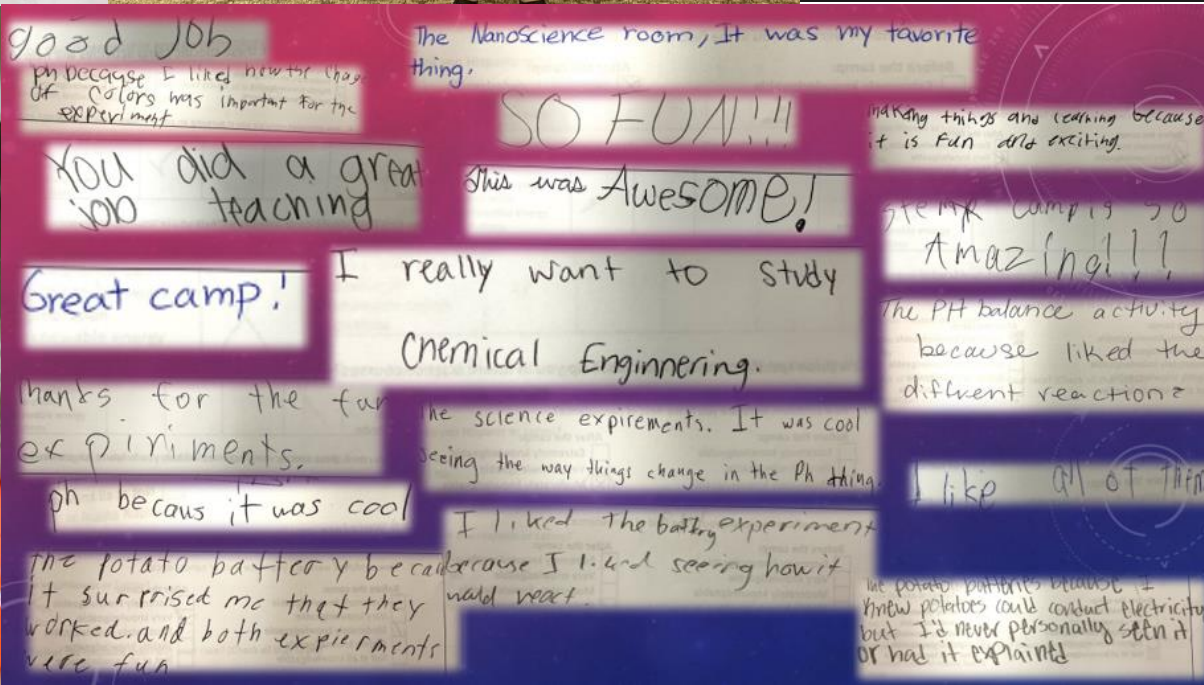 good Job
ph because I liked how the chag
of colors was important for the
experiment
You did a great
job teaching
Great camp!
Thanks for the fun
expiriments.
ph becaus it was cool
The potato battery becau
it surprised me that they
worked. and both expierments
were fun
The Nanoscience room, It was my favorite
thing.
SO FUN!!!
This was Awesome!
I really want to study
Chemical Enginnering.
The science expirements. It was cool
seeing the way things change in the Ph thing.
I liked the battry experiment
because I liked seeing how it
would react.
making things and learning because
it is fun and exciting.
camp is so
Amazing!!!
The PH balance activity
because liked the
diffrent reactions
I like all of them
The potato batteries because I
knew potatoes could conduct electricity
but I'd never personally seen it
or had it explained